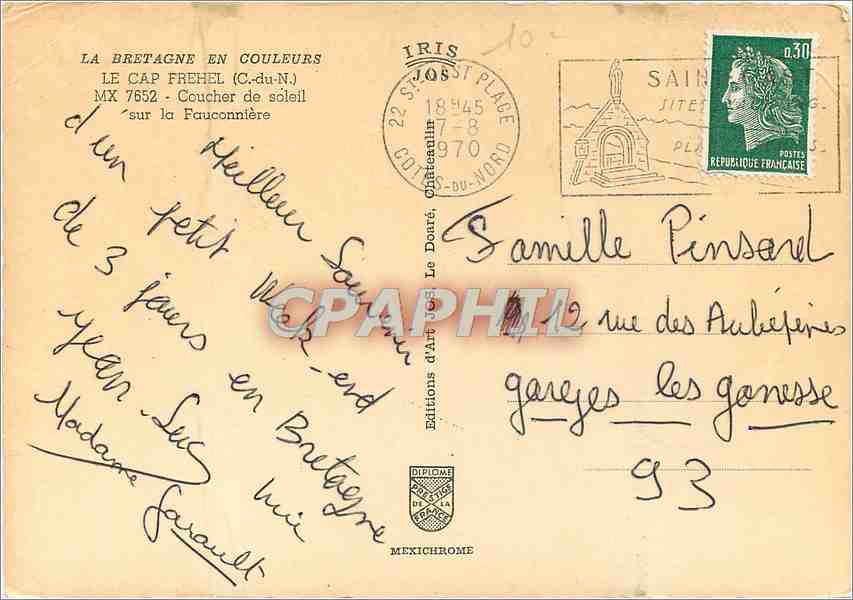 LA BRETAGNE EN COULEURS
LE CAP FREHEL (C.-du-N.)
MX 7652 - Coucher de soleil
sur la Fauconnière
IRIS
JOS
10
22 ST-CAST PLAGE
18H45
7-8
1970
COTES-DU-NORD
SAIN
SITES
PLA
0,30
POSTES
REPUBLIQUE FRANÇAISE
Meilleur Souvenir
d'un petit Week-end
de 3 jours en Bretagne
Jean-Luc
Madame Garault
Editions d'Art JOS. Le Doaré, Châteaulin
Famille Pinsard
12 rue des Aubépines
gareges les gonesse
93
CPAPHIL
DIPLOME
PRESTIGE
DE LA
FRANCE
MEXICHROME